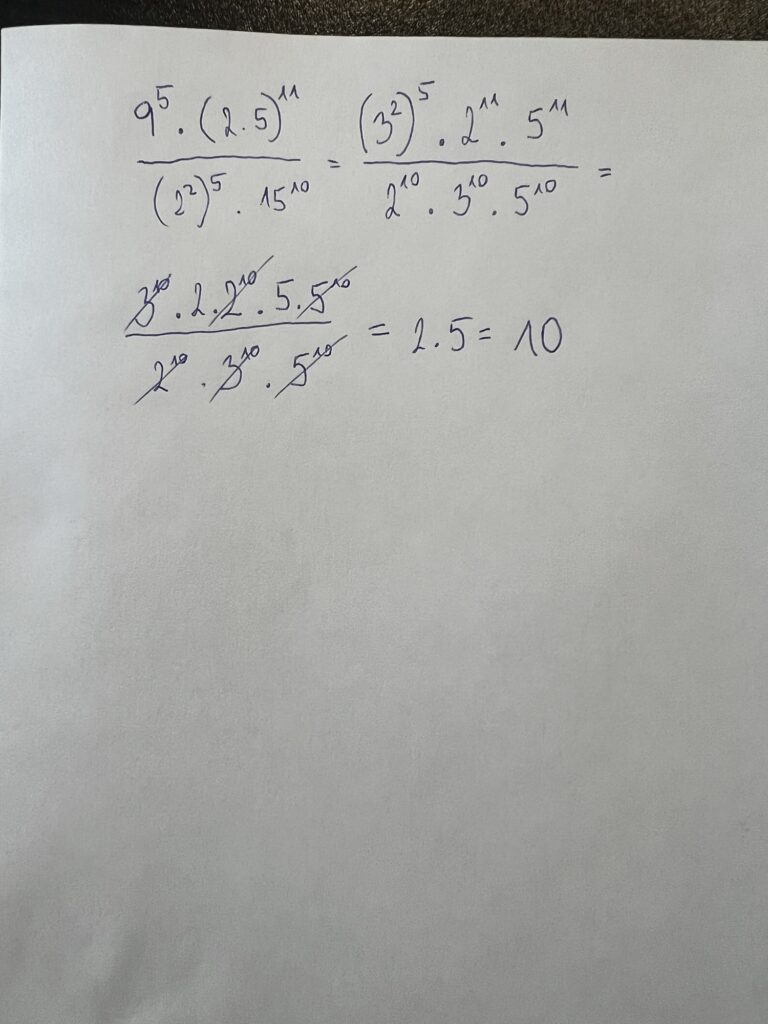 9⁵ . (2.5)¹¹ / (2²)⁵ . 15¹⁰ = (3²)⁵ . 2¹¹ . 5¹¹ / 2¹⁰ . 3¹⁰ . 5¹⁰ =
3¹⁰ . 2 . 2¹⁰ . 5 . 5¹⁰ / 2¹⁰ . 3¹⁰ . 5¹⁰ = 2.5 = 10